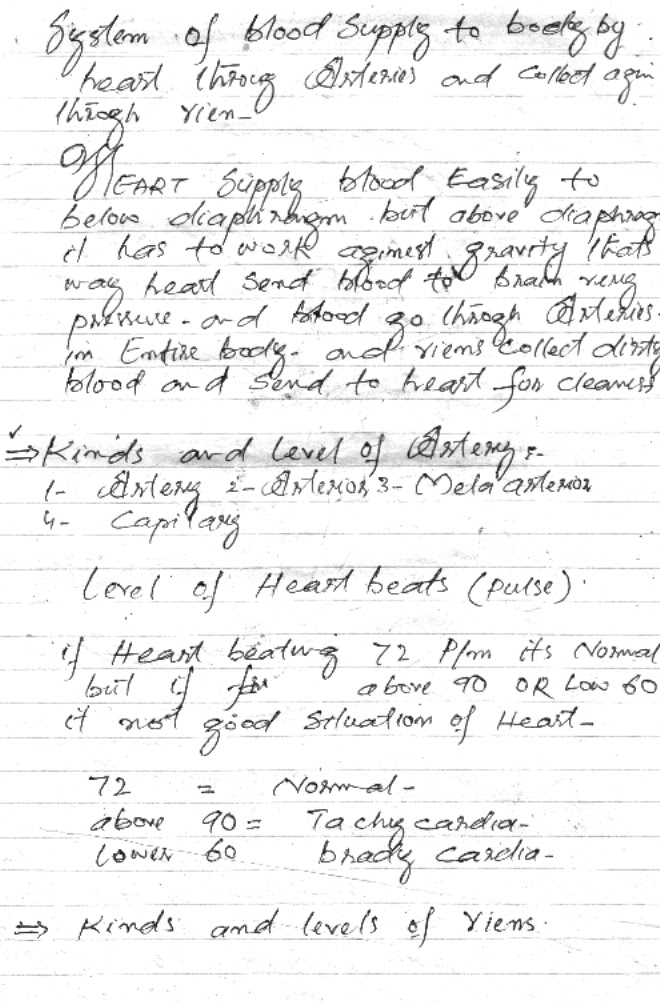 System of blood Supply to body by
heart throug Arteries and collect agin
through vien-
HEART Supply blood Easily to
below diaphragm but above diaphrag
it has to work aginest gravity thats
way heart send blood to brain very
pressure - and blood go through Arteries
in Entire body - and viens collect dirty
blood and Send to heart for cleaness
⇒ Kinds and level of Artery :-
1- Artery 2- Arterios 3- Meta arterior
4- Capilary
Level of Heart beats (pulse).
if Heart beating 72 P/m its Normal
but if above 90 OR Low 60
it not good Situation of Heart-
72 = Normal-
above 90 = Tachy cardia-
lower 60 brady cardia-
⇒ Kinds and levels of Viens.